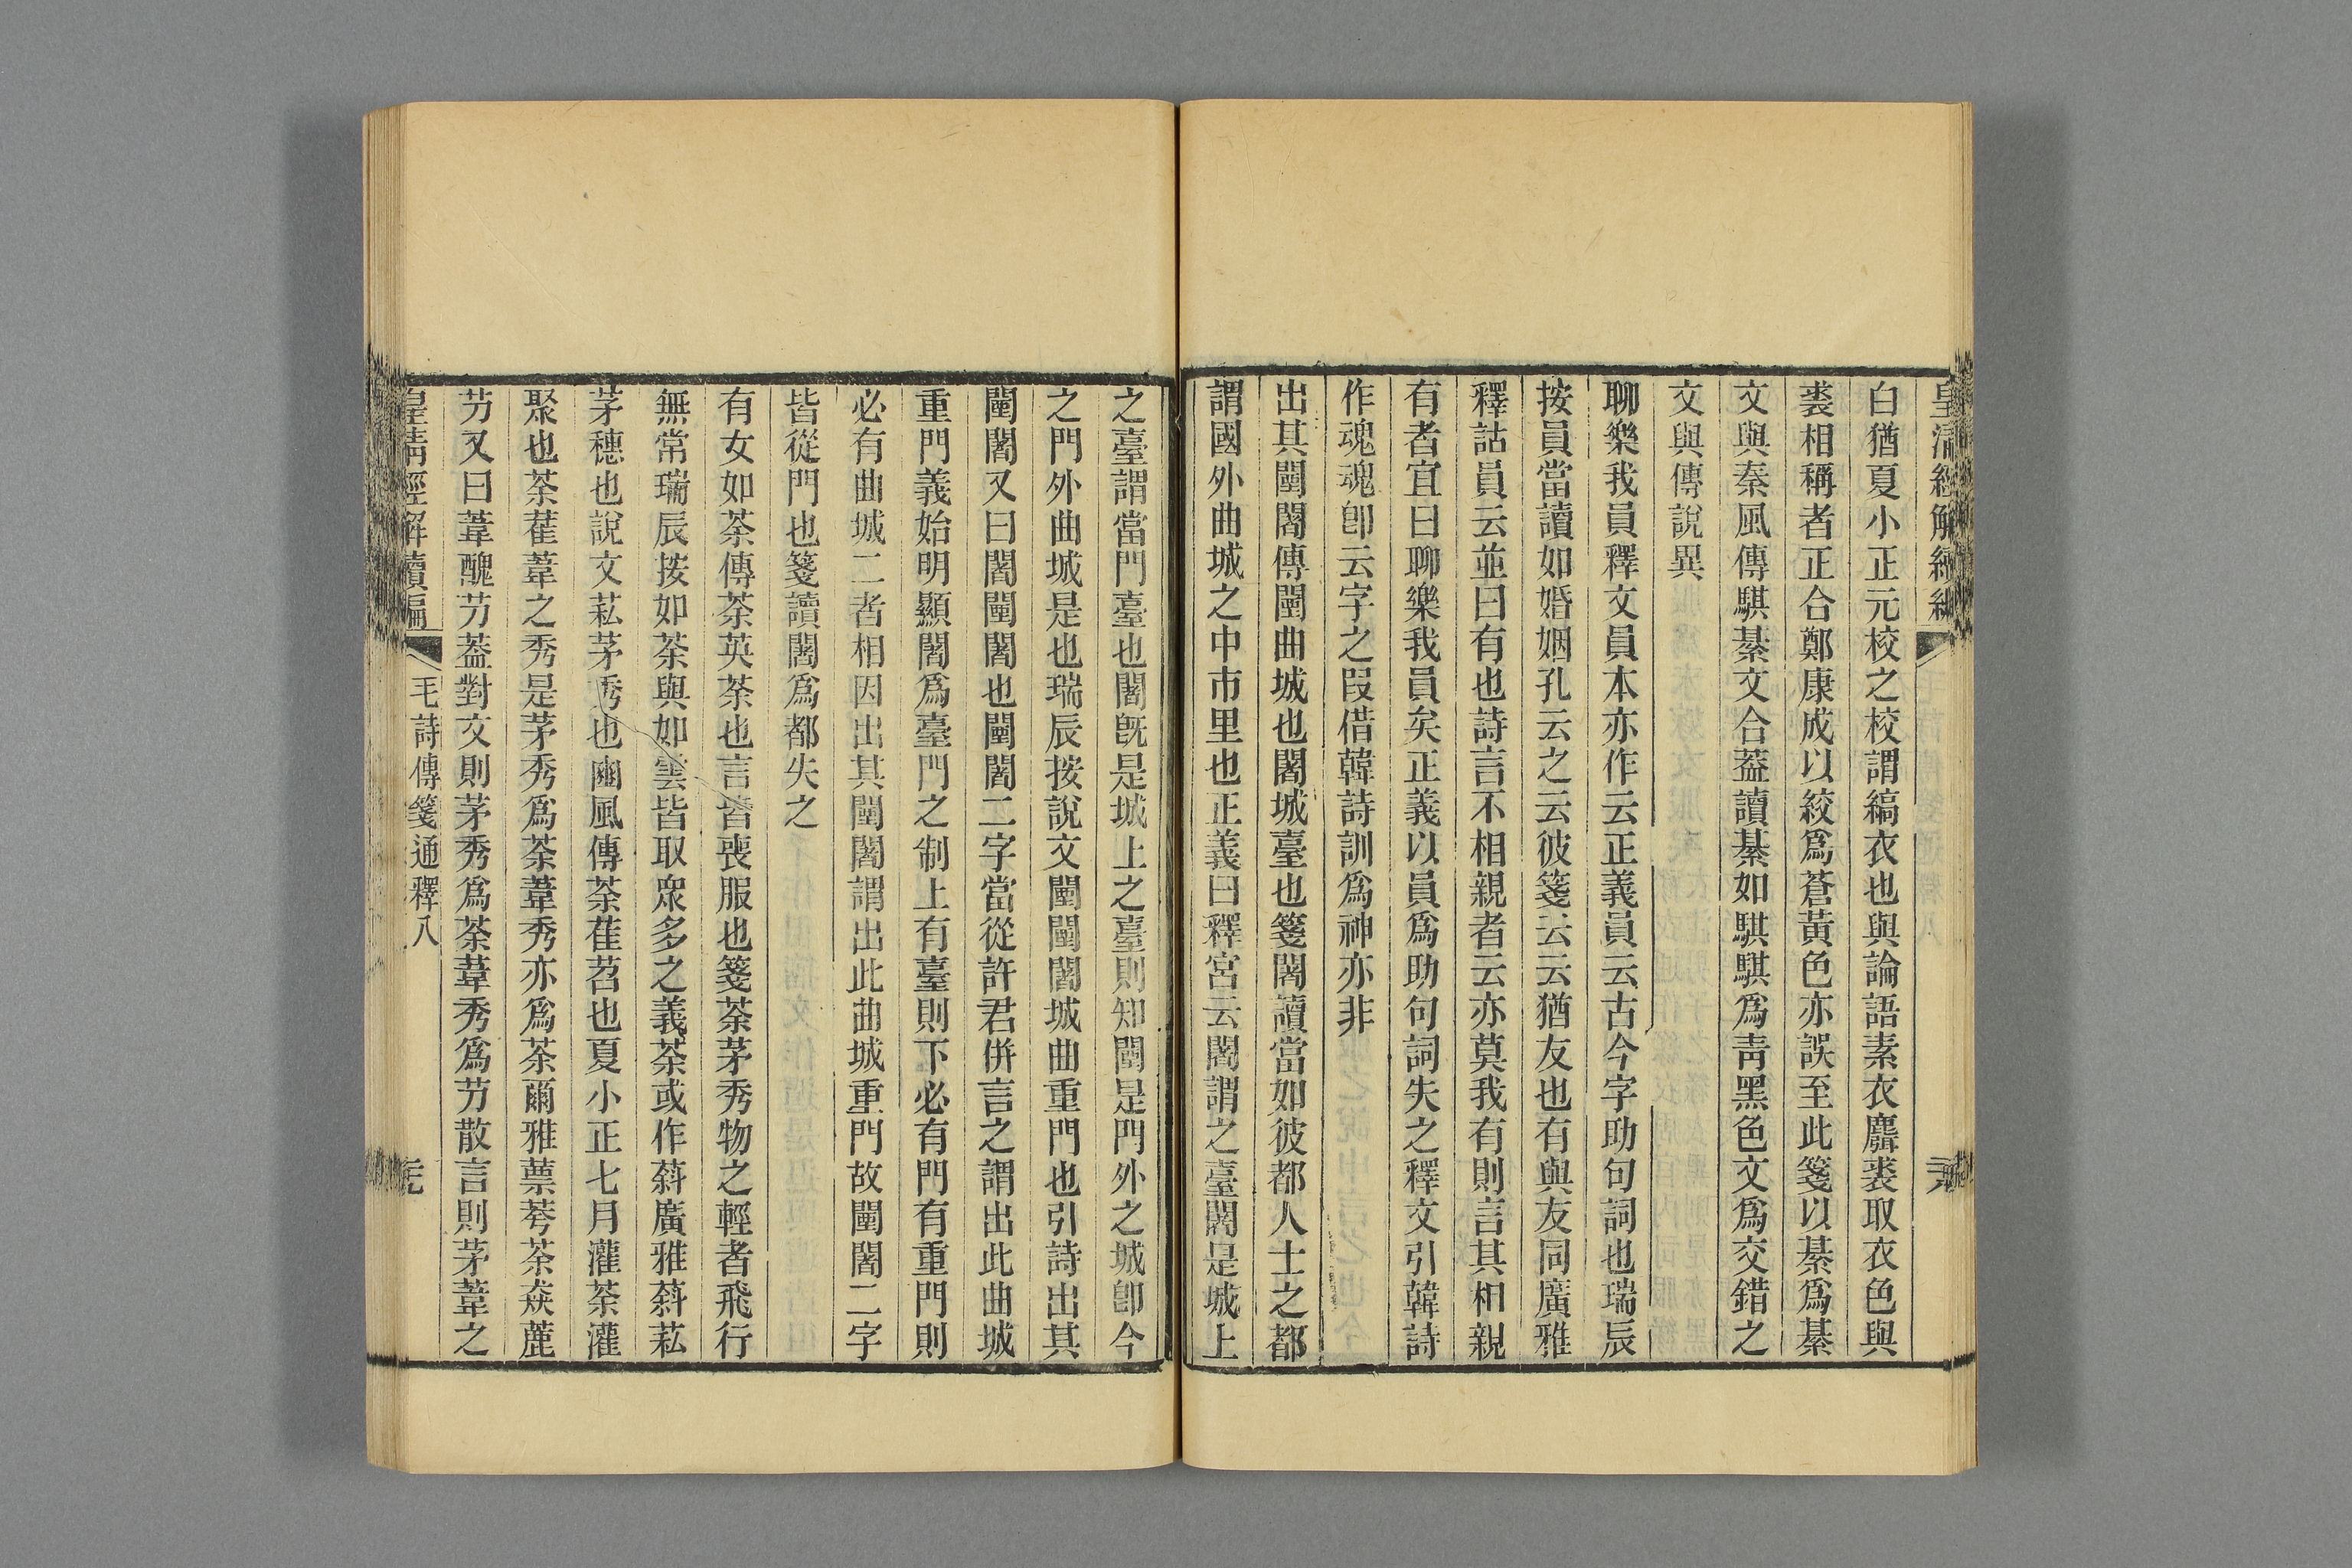 皇清經解續編
白猶夏小正元校之校謂縞衣也與論語素衣麑裘取衣色與
裘相稱者正合鄭康成以絞爲蒼黃色亦誤至此箋以綦爲綦
文與秦風傳騏綦文合葢讀綦如騏騏爲靑黑色文爲交錯之
文與傳說異
聊樂我員釋文員本亦作云正義員云古今字助句詞也瑞辰
按員當讀如婚姻孔云之云彼箋云云猶友也有與友同廣雅
釋詁員云並曰有也詩言不相親者云亦莫我有則言其相親
有者宜曰聊樂我員矣正義以員爲助句詞失之釋文引韓詩
作魂魂卽云字之叚借韓詩訓爲神亦非
出其闉闍傳闉曲城也闍城臺也箋闍讀當如彼都人士之都
謂國外曲城之中市里也正義曰釋宮云闍謂之臺闍是城上
之臺謂當門臺也闍旣是城上之臺則知闉是門外之城卽今
之門外曲城是也瑞辰按說文闉闉闍城曲重門也引詩出其
闉闍又曰闍闉闍也闉闍二字當從許君倂言之謂出此曲城
重門義始明顯闍爲臺門之制上有臺則下必有門有重門則
必有曲城二者相因出其闉闍謂出此曲城重門故闉闍二字
皆從門也箋讀闍爲都失之
有女如荼傳荼英荼也言皆喪服也箋荼茅秀物之輕者飛行
無常瑞辰按如荼與如雲皆取衆多之義荼或作蒤廣雅蒤菘
茅穗也說文菘茅秀也豳風傳荼萑苕也夏小正七月灌荼灌
聚也荼萑葦之秀是茅秀爲荼葦秀亦爲荼爾雅蔈荂荼猋藨
芀又曰葦醜芀葢對文則茅秀爲荼葦秀爲芀散言則茅葦之
皇淸經解續編
毛詩傳箋通釋八